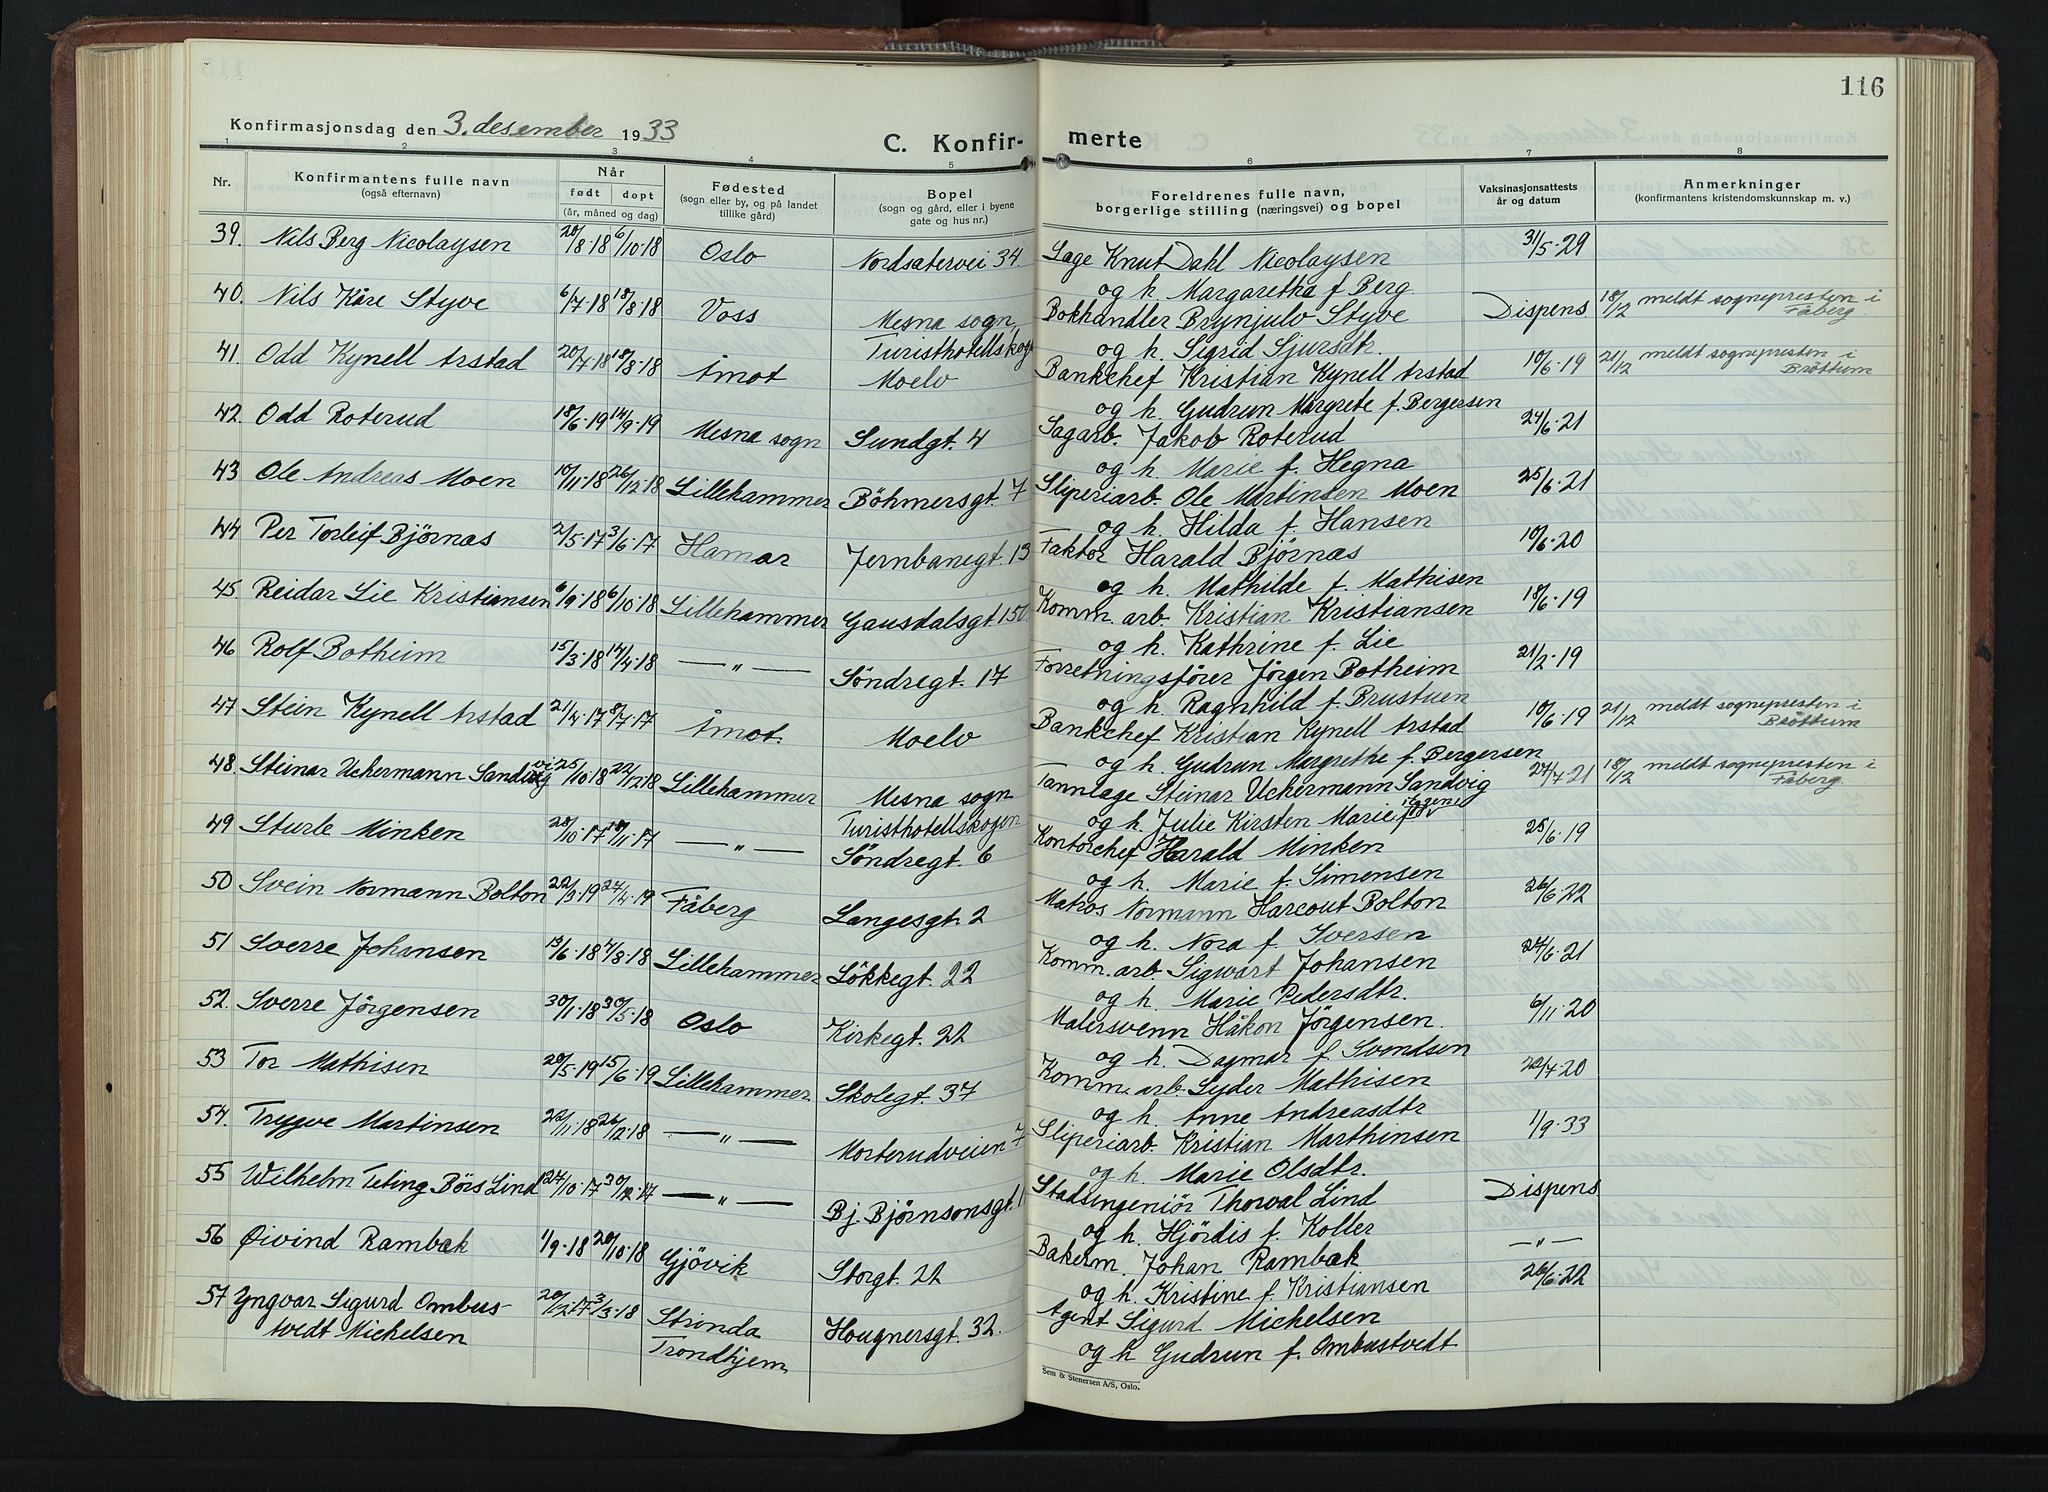 116
Konfirmasjonsdag den 3. desember 1933
C. Konfir- merte
1 2 3 4 5 6 7 8
Nr. Konfirmantens fulle navn (også efternavn) Når født døpt (år, måned og dag) Fødested (sogn eller by, og på landet tillike gård) Bopel (sogn og gård, eller i byene gate og hus nr.) Foreldrenes fulle navn, borgerlige stilling (næringsvei) og bopel Vaksinasjonsattests år og datum Anmerkninger (konfirmantens kristendomskunnskap m. v.)
39. Nils Berg Nicolaysen 20/8·18 6/10·18 Oslo Nordsetervei 34. Sage Knut Dahl Nicolaysen 31/5·29
og h. Margaretha f Berg
40. Nils Kåre Styve 6/7·18 18/8·18 Voss Mesna sogn, Bokhandler Brynjulv Styve Dispens 18/12 meldt sognepresten i Fåberg.
Turisthotellskogn og h. Sigrid Sjursdtr.
41. Odd Kynell Arstad 20/7·18 18/8·18 Åmot Moelv Bankchef Kristian Kynell Arstad 10/6·19 21/12 meldt sognepresten i Brøttum
og h. Gudrun Margrete f. Bergersen
42. Odd Roterud 18/6·19 14/9·19 Mesna sogn Sundgt. 4 Sagarb. Jakob Roterud 24/6·21
og h. Marie f. Hegna
43 Ole Andreas Moen 10/11·18 26/12·18 Lillehammer Böhmersgt. 7 Sliperiarb. Ole Martinsen Moen 25/6·21
og h. Hilda f. Hansen
44 Per Torleif Bjørnæs 2/5·17 3/6·17 Hamar Jernbanegt. 13 Faktor Harald Bjørnæs 10/6·20
og h. Mathilde f. Mathisen
45 Reidar Lie Kristiansen 6/9·18 6/10·18 Lillehammer Gausdalsgt. 150. Komm. arb. Kristian Kristiansen 18/6·19
og h. Kathrine f. Lie
46 Rolf Botheim 15/3·18 14/4·18 — „ — Söndregt. 17 Forretningsfører Jørgen Botheim 21/2·19
og h. Ragnhild f. Brustuen
47 Stein Kynell Arstad 21/4·17 8/7·17 Åmot. Moelv Bankchef Kristian Kynell Arstad 10/6·19 21/12 meldt sognepresten i Brøttum
og h. Gudrun Margrethe f. Bergersen
48. Steinar Uchermann Sandvig 25/10·18 22/12·18 Lillehammer Mesna sogn Tannlæge Steinar Uchermann Sandvig 27/7·21 18/12 meldt sognepresten i Fåberg.
Turisthotellskogen og h. Julie Kirsten Marie
49 Sturle Minken 28/10·17 18/11·17 — „ — Söndregt. 6 Kontorchef Harald Minken 25/6·19
og h. Marie f. Simensen
50 Svein Normann Bolton 22/3·19 27/4·19 Fåberg Langesgt. 2 Matros Normann Harcout Bolton 26/6·22
og h. Nora f. Iversen
51 Sverre Johansen 13/6·18 4/8·18 Lillehammer Lökkegt. 22 Komm. arb. Sigwart Johansen 27/6·21
og h. Marie Pedersdtr.
52. Sverre Jörgensen 30/1·18 30/5·18 Oslo Kirkegt. 22 Malersvenn Håkon Jörgensen. 6/11·20
og h. Dagmar f. Svendsen
53 Tor Mathisen 20/5·19 15/6·19 Lillehammer Skolegt. 37 Komm. arb. Syder Mathisen 22/7·20
og h. Anne Andreasdtr
54. Trygve Martinsen 22/11·18 26/12·18 — „ — Morterudveien 7 Sliperiarb. Kristian Marthinsen 1/9·33
og h. Marie Olsdtr.
55 Wilhelm Teting Börs Lind 27/10·17 30/12·17 — „ — Bj. Bjørnsonsgt. 11 Stadsingeniör Thorval Lind Dispens
og h. Hjördis f. Koller
56 Øivind Rambæk 1/9·18 20/10·18 Gjövik Storgt. 22 Bakerm. Johan Rambæk — „ —
og h. Kristine f. Kristiansen
57 Yngvar Sigurd Ombus- 20/12·17 3/3·18 Strinda Hougnersgt. 32. Agent Sigurd Michelsen 26/6·22
tvedt Michelsen Trondhjem og h Gudrun f. Ombustvedt
Sem & Stenersen A/S, Oslo.